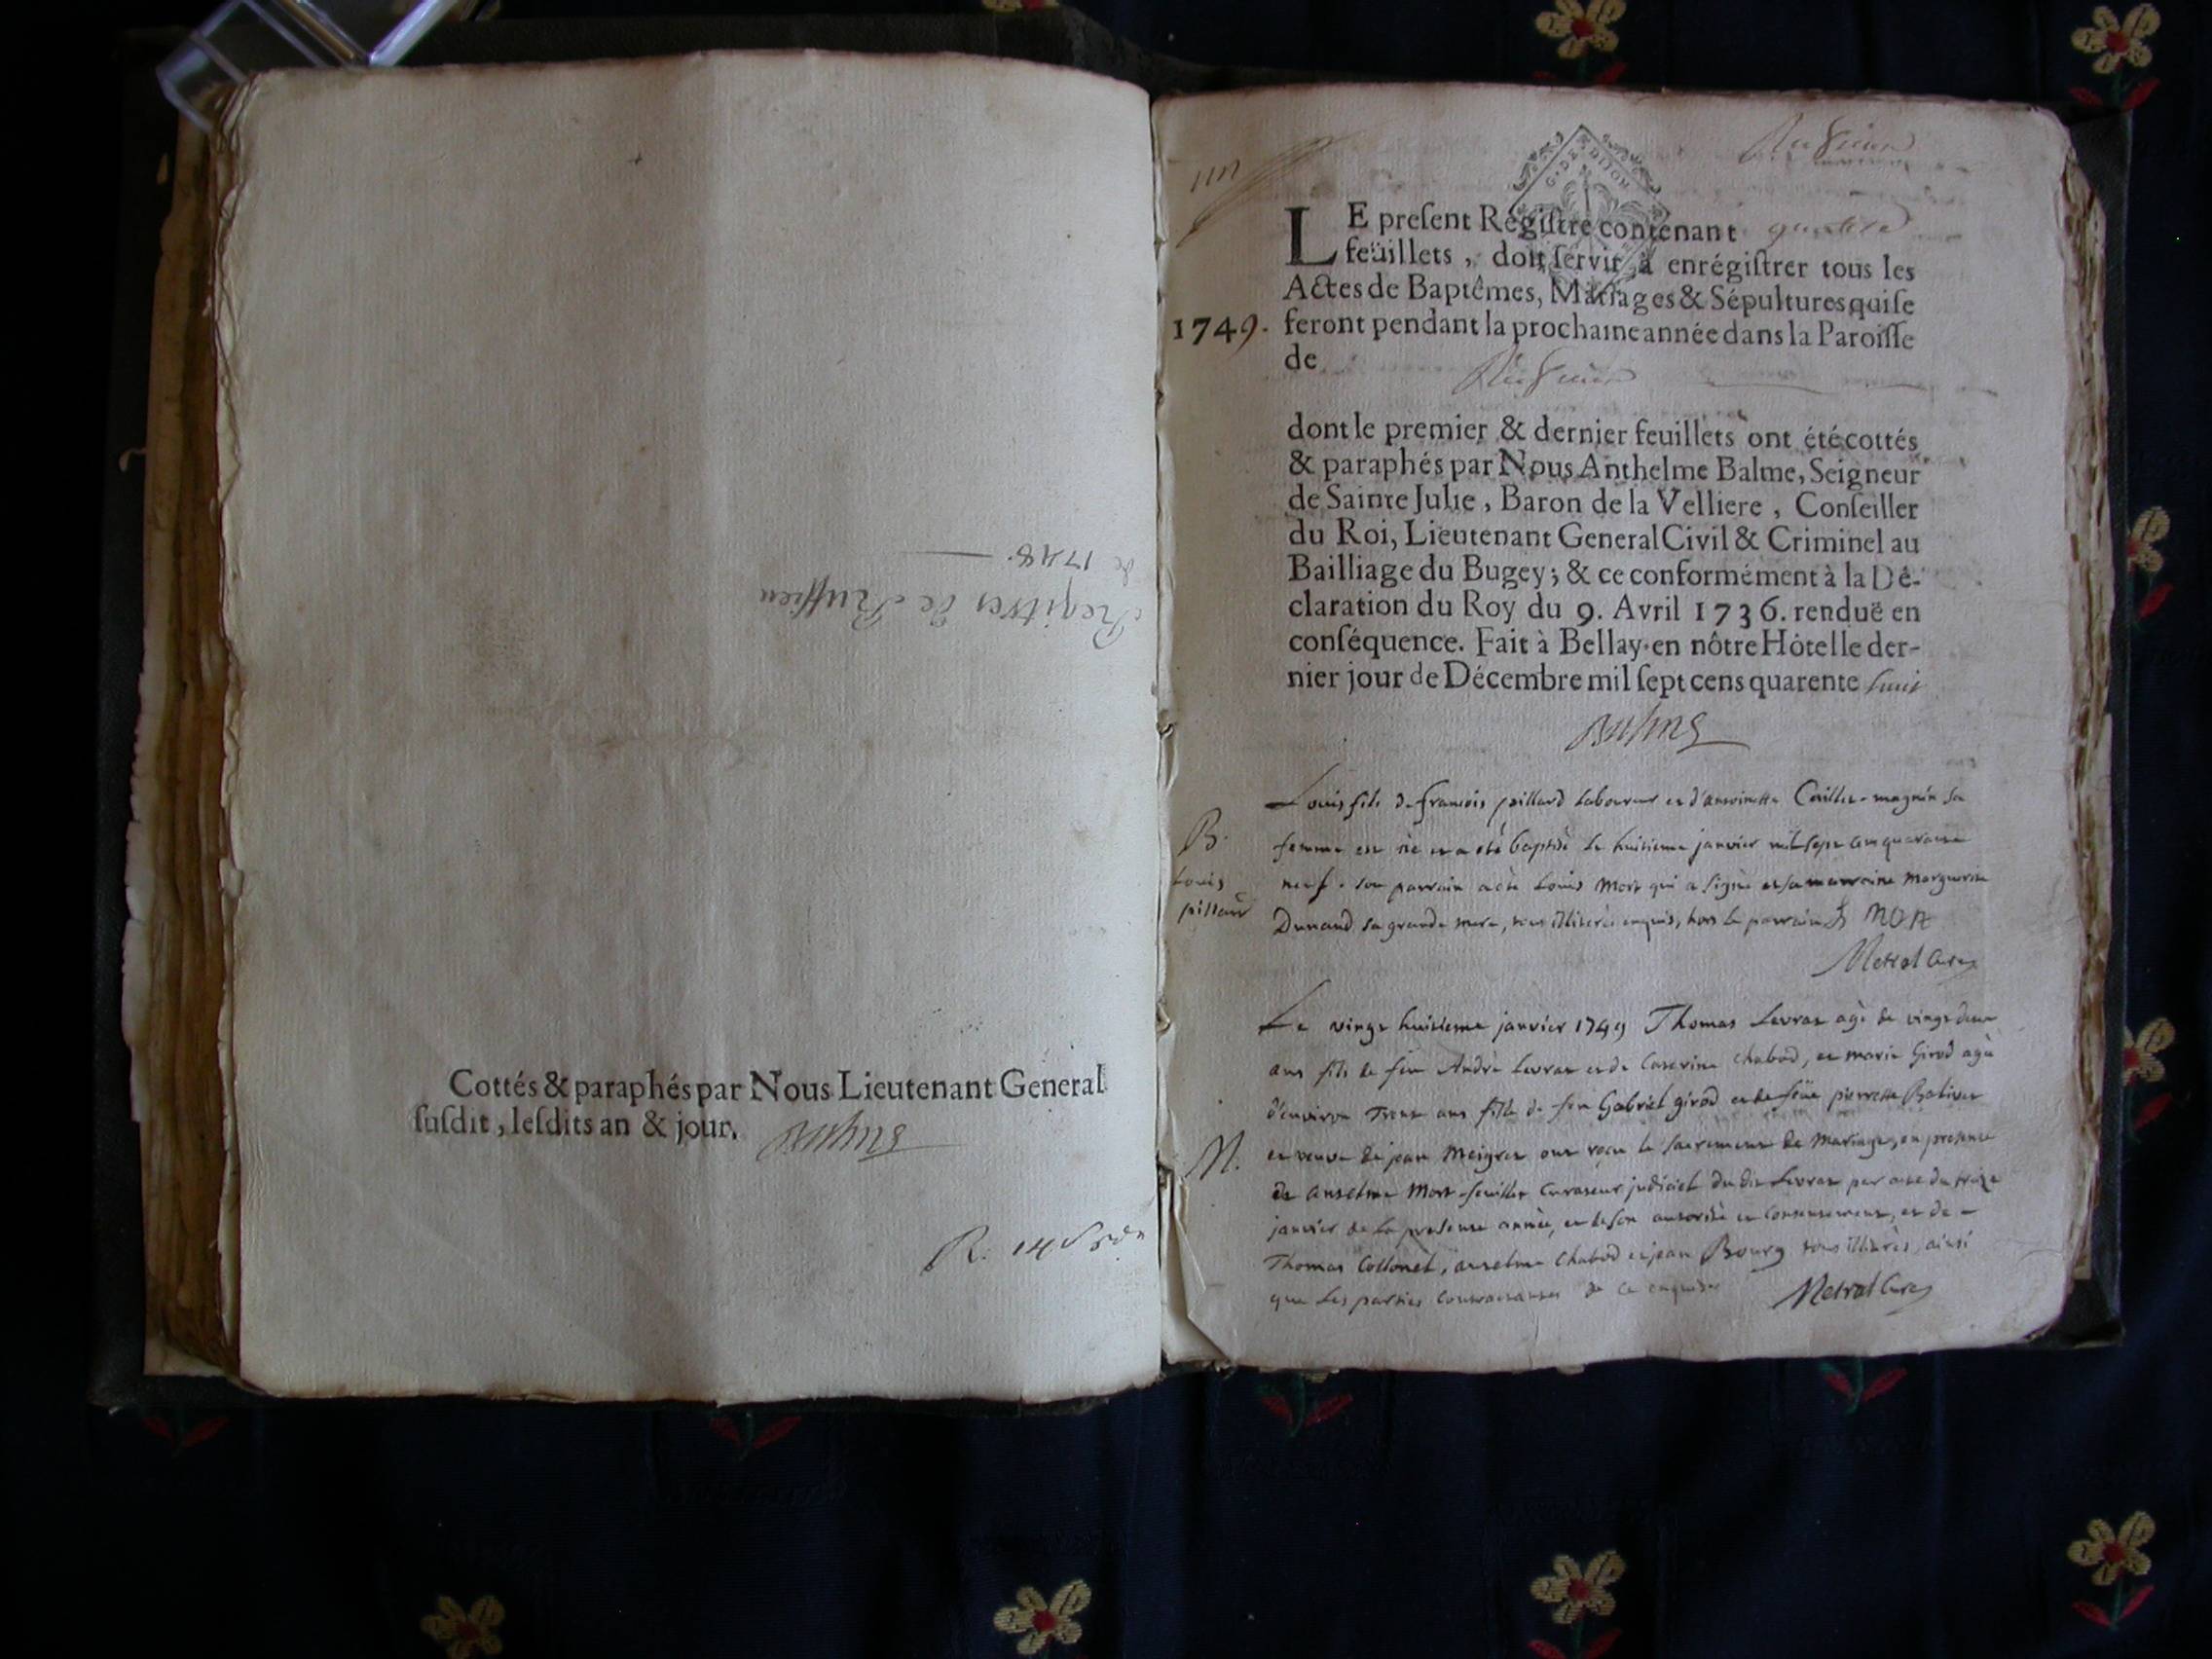 Regitres de Ruffieu
de 1748.
Cottés & paraphés par Nous Lieutenant General
ſuſdit, leſdits an & jour.
Balme
G. DE DIJON
LE preſent Régiſtre contenant quatre
feüillets, doit ſervir à enrégiſtrer tous les
Actes de Baptêmes, Mariages & Sépultures qui ſe
1749. feront pendant la prochaine année dans la Paroiſſe
de Ruffieu
dont le premier & dernier feuillets ont été cottés
& paraphés par Nous Anthelme Balme, Seigneur
de Sainte Julie, Baron de la Velliere, Conſeiller
du Roi, Lieutenant General Civil & Criminel au
Bailliage du Bugey; & ce conformément à la Dé-
claration du Roy du 9. Avril 1736. renduë en
conſéquence. Fait à Bellay en nôtre Hôtel le der-
nier jour de Décembre mil ſept cens quarente huit
Balme
B.
Louis
pillard
Louis fils de francois pillard laboureur et d'antoinette Caillet-magnin sa
femme est né et a été baptisé le huitieme janvier mil sept cens quarante
neuf. son parrain a été Louis Mort qui a signé et sa marraine marguerite
Dunand sa grande mere, tous illiterés enquis, hors le parrain MOR
Metral Curé
M.
Le vingt huitieme janvier 1749 Thomas Levrat agé de vingt deux
ans fils de feu André Levrat et de Caterine Chabod, et marie Girod agée
d'environ trente ans fille de feu Gabriel girod et de feüe pierrette Balivet
et veuve de jean Meigret ont reçu le sacrement de Mariage, en presence
de anselme Mort-feuillet Curateur judiciel du dit Levrat par acte du treize
janvier de la presente année, et de son autorité et consentement, et de
Thomas Collonet, anselme Chabod et jean Bourg tous illiterés, ainsi
que les parties contractantes de ce enquises
Metral Curé